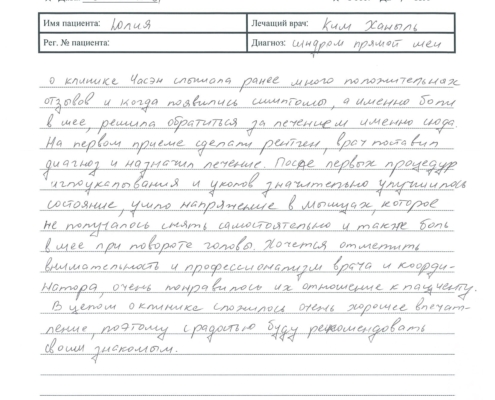 Имя пациента: Юлия
Лечащий врач: Ким Ханыль
Рег. № пациента:
Диагноз: синдром прямой шеи
О клинике Чосэн слышала ранее много положительных
отзывов и когда появились симптомы, а именно боли
в шее, решила обратиться за лечением именно сюда.
На первом приеме сделали рентген, врач поставил
диагноз и назначил лечение. После первых процедур
иглоукалывания и уколов значительно улучшилось
состояние, ушло напряжение в мышцах, которое
не получалось снять самостоятельно и также боль
в шее при повороте головы. Хочется отметить
внимательность и профессионализм врача и коорди-
натора, очень понравилось их отношение к пациенту.
В целом о клинике сложилось очень хорошее впечат-
ление, поэтому с радостью буду рекомендовать
своим знакомым.